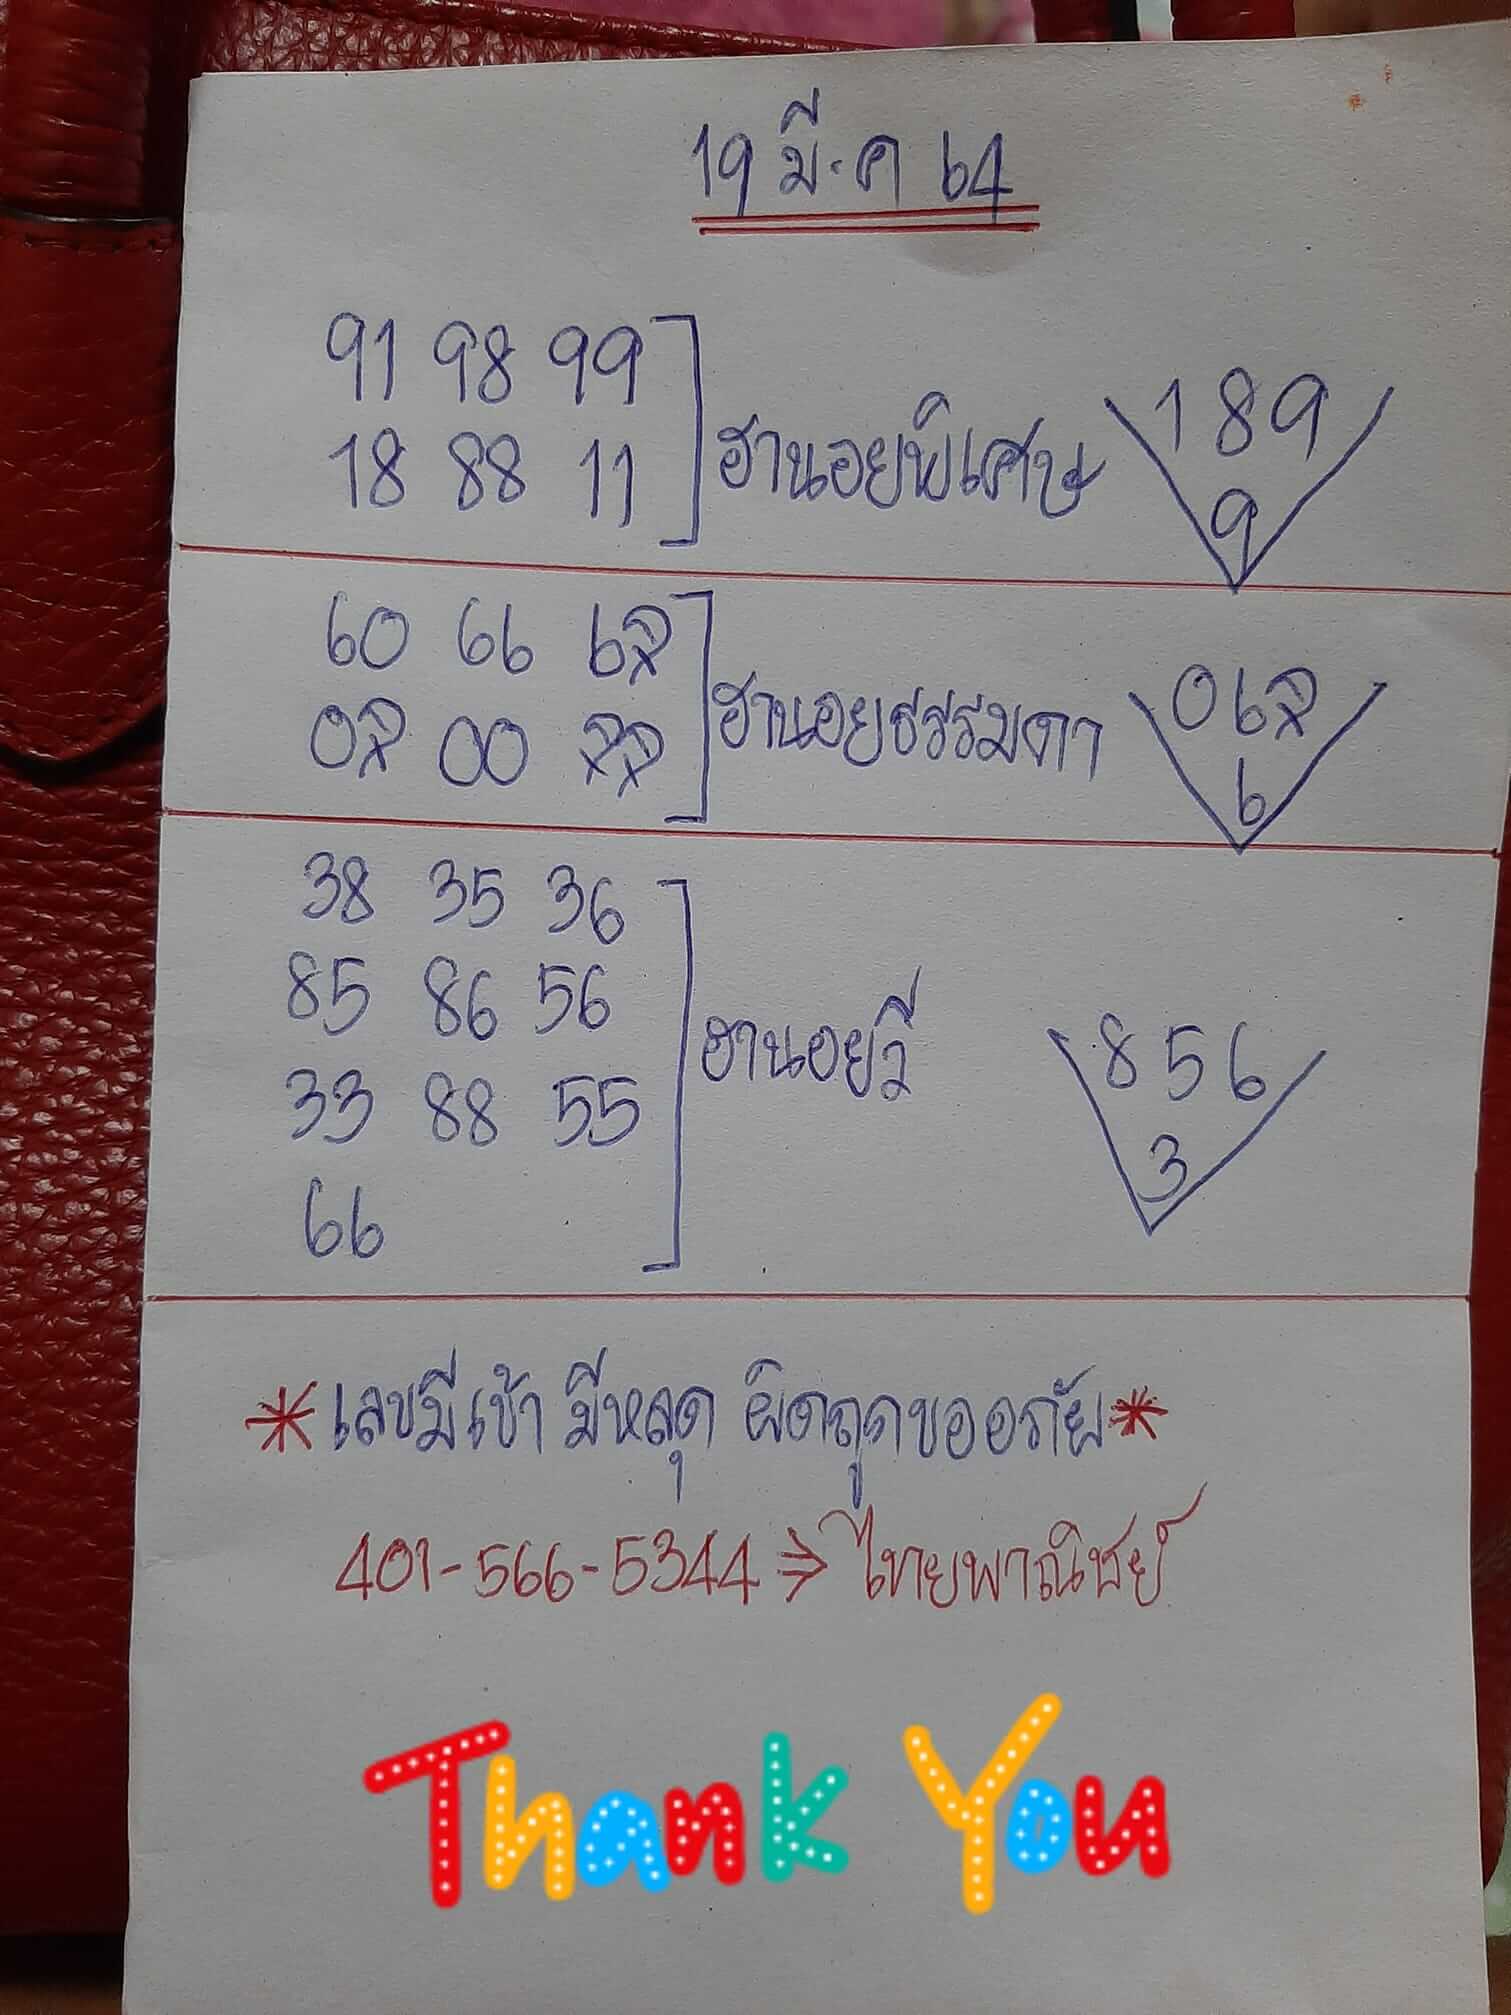 19 มี.ค 64
91 98 99
18 88 11
ฮานอยพิเศษ
189
9
60 66 62
02 00 22
ฮานอยธรรมดา
062
6
38 35 36
85 86 56
33 88 55
66
ฮานอยวี
856
3
*เลขมีเข้า มีหลุด ผิดถูกขออภัย*
401-566-5344 ⇒ ไทยพาณิชย์
Thank You